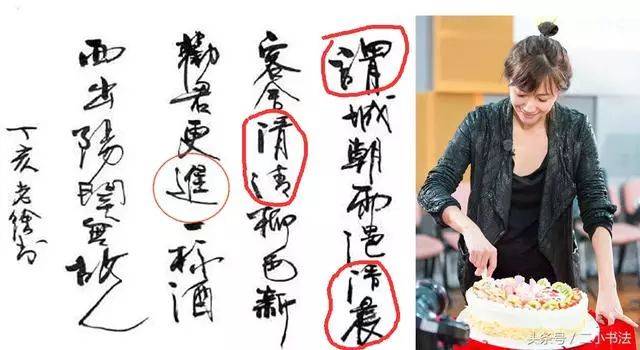 謂城朝雨浥清晨
客舍清清柳色新
勸君更進一杯酒
西出陽關無故人
丁亥老徐书
头条号／二小书法